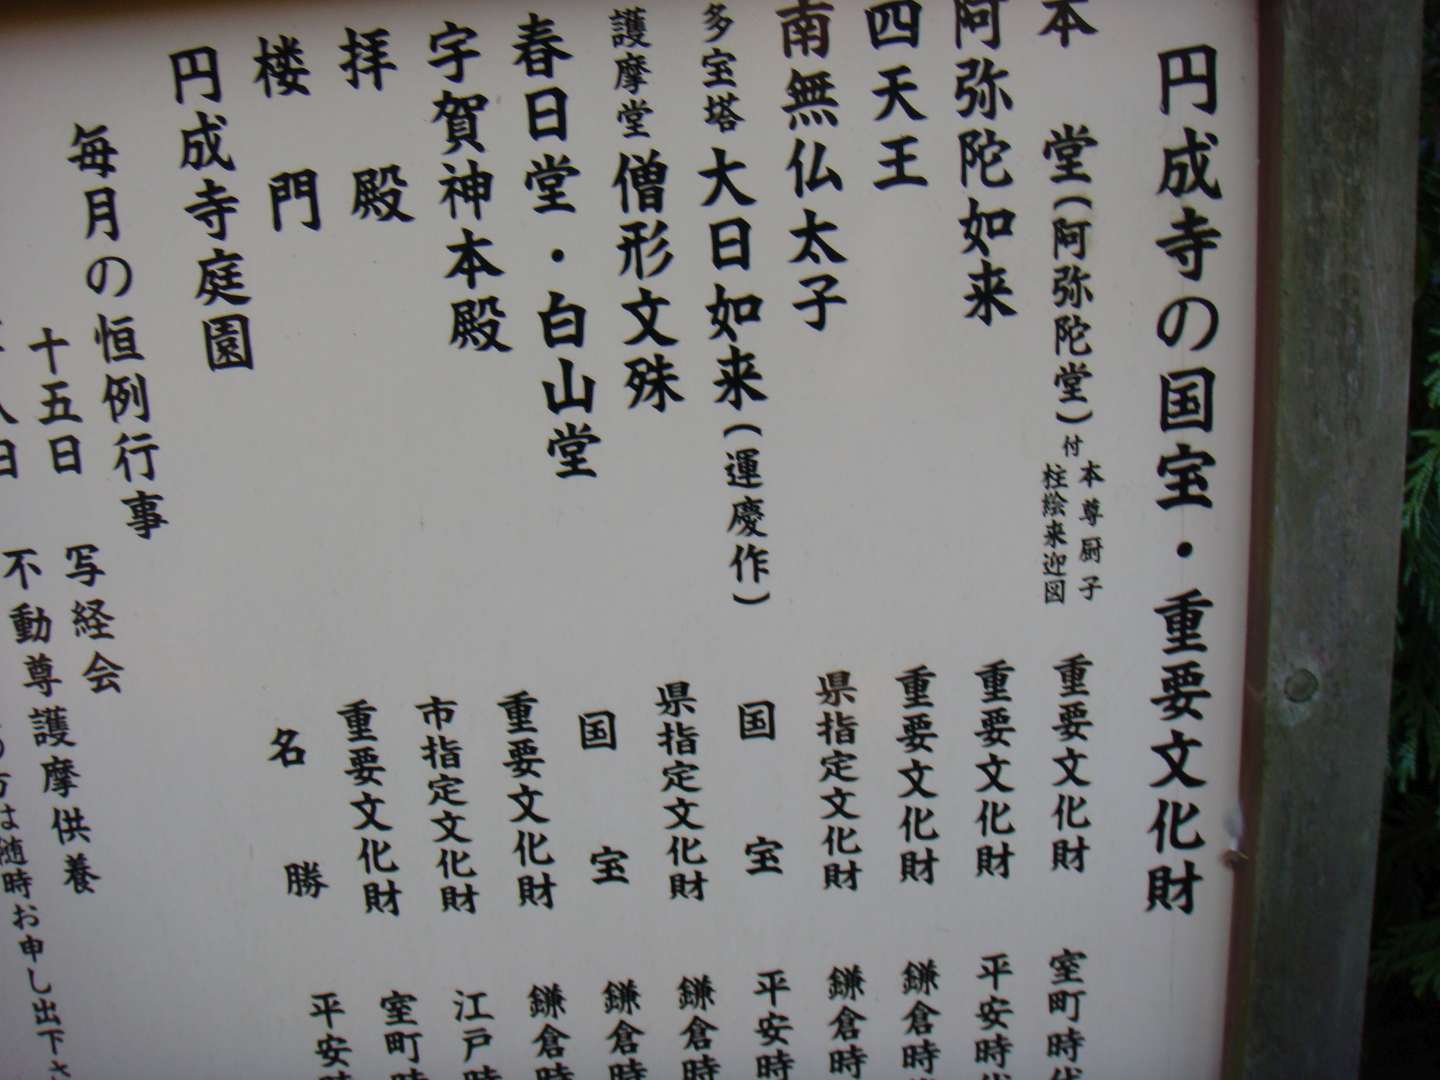 円成寺の国宝・重要文化財
本堂（阿弥陀堂）付 本尊厨子 柱絵来迎図 重要文化財 室町時代
阿弥陀如来 重要文化財 平安時代
四天王 重要文化財 鎌倉時
南無仏太子 県指定文化財 鎌倉時
多宝塔 大日如来（運慶作） 国宝 平安時
護摩堂 僧形文殊 県指定文化財 鎌倉時
春日堂・白山堂 国宝 鎌倉時
宇賀神本殿 重要文化財 鎌倉時
拝殿 市指定文化財 江戸時
楼門 重要文化財 室町時
円成寺庭園 名勝 平安時
毎月の恒例行事
十五日 写経会
八日 不動尊護摩供養
の方は随時お申し出下さ